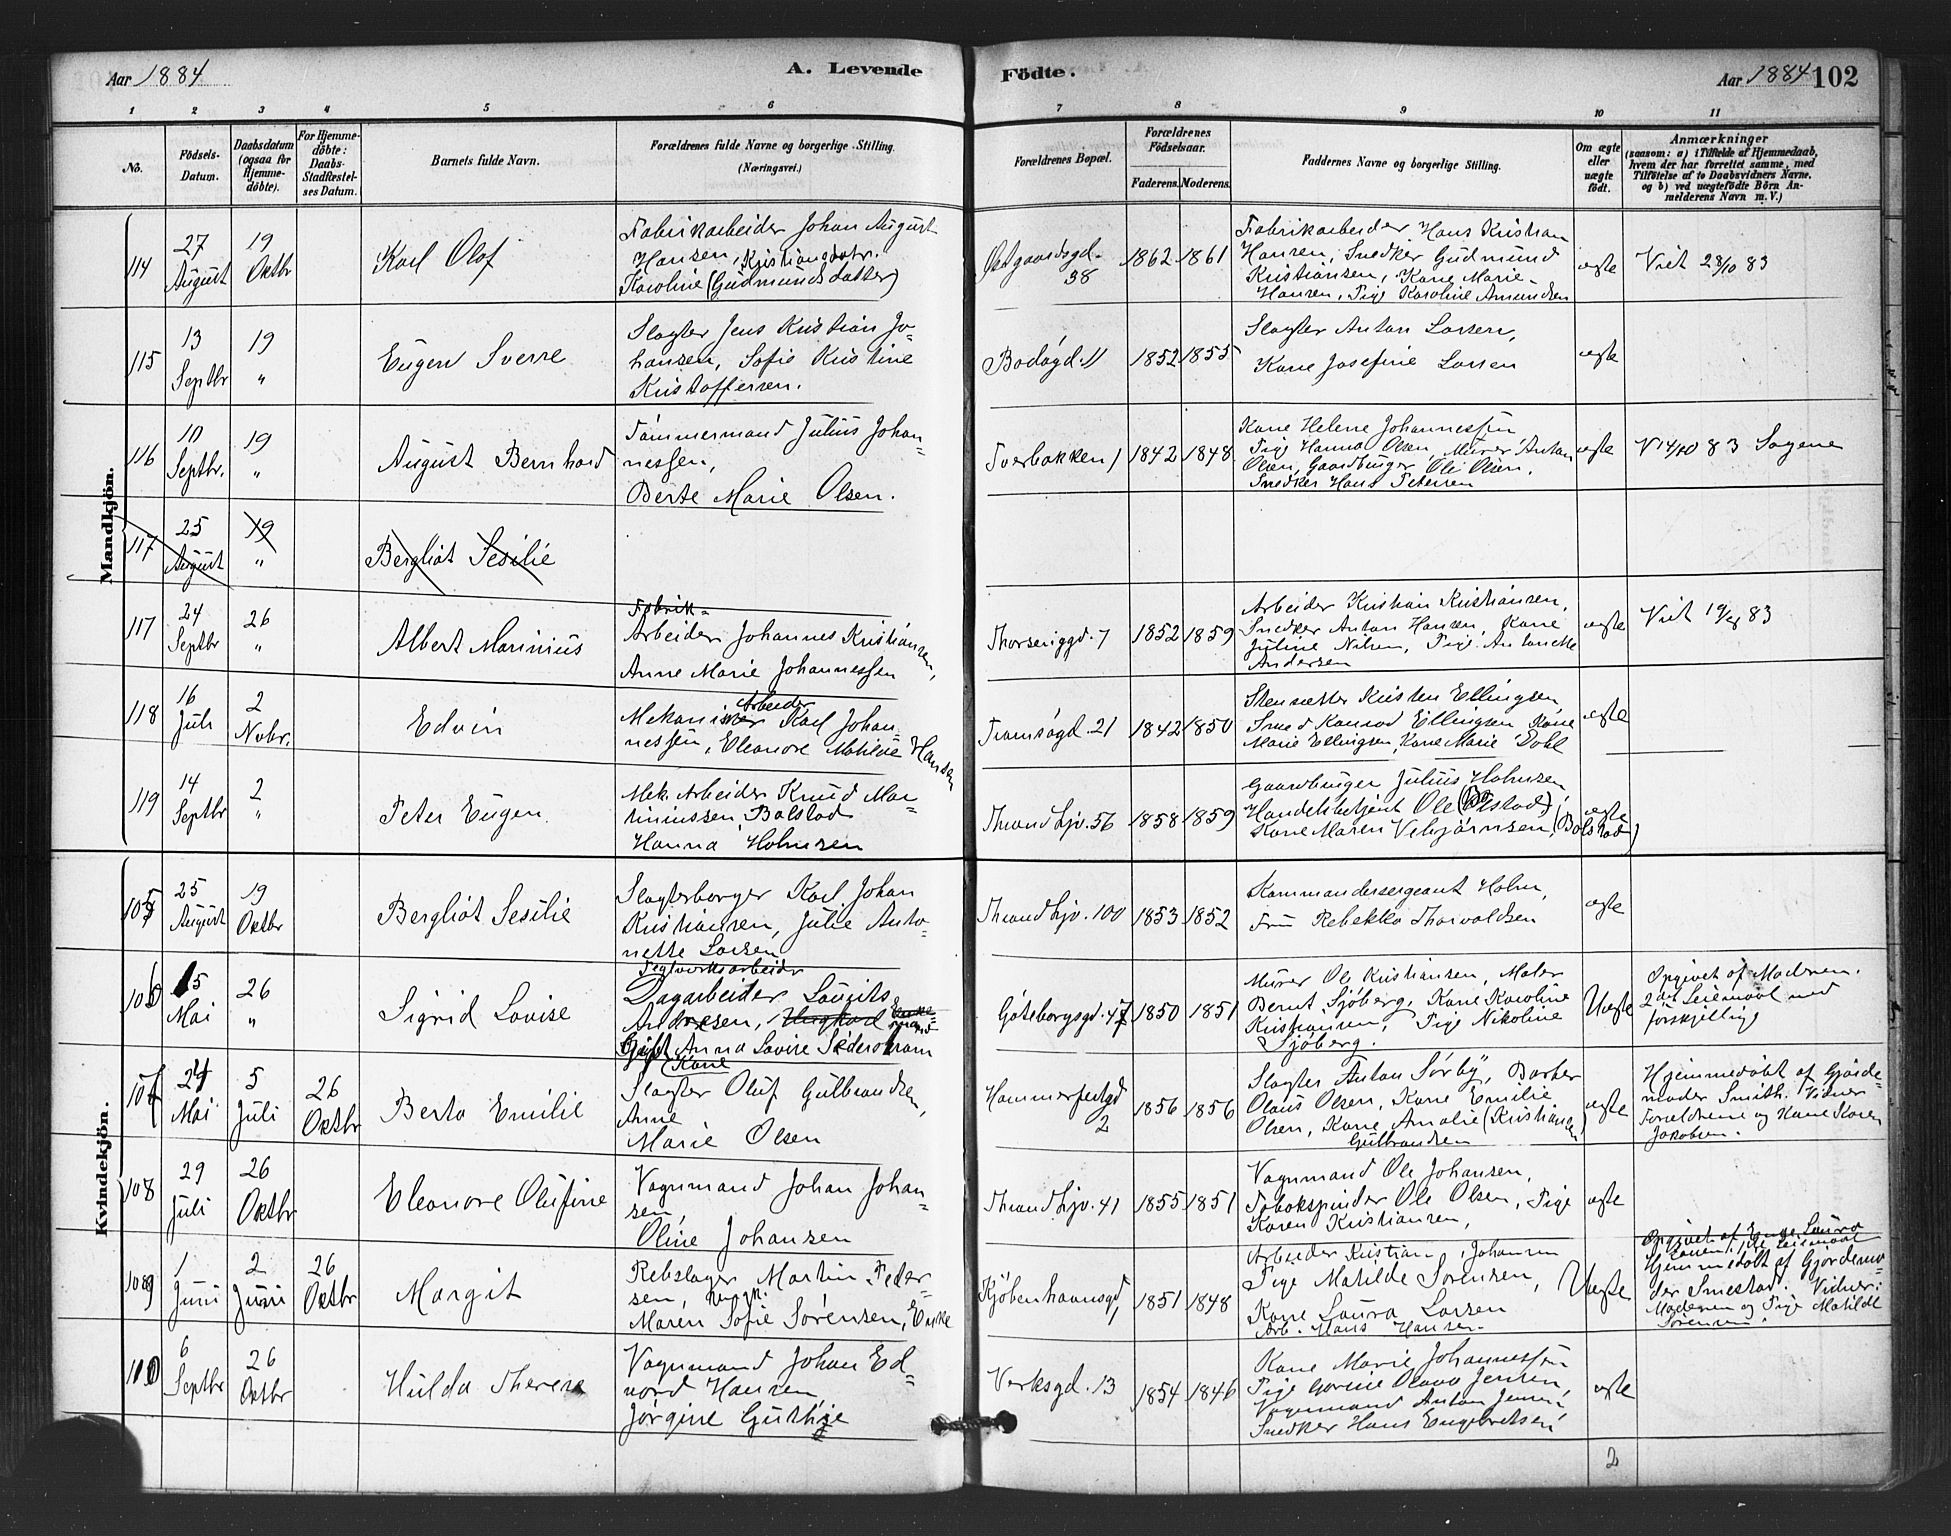 Aar 1884
A. Levende Födte.
Aar 1884 102
1 2 3 4 5 6 7 8 9 10 11
No.
Födsels-Datum.
Daabsdatum (ogsaa for Hjemme-döbte).
For Hjemme-döbte: Daabs-Stadfæstel-ses Datum.
Barnets fulde Navn.
Forældrenes fulde Navne og borgerlige Stilling.
(Næringsvei.)
Forældrenes Bopæl.
Forældrenes Födselsaar.
Faderens. Moderens.
Faddernes Navne og borgerlige Stilling.
Om ægte eller uægte födt.
Anmærkninger
(saasom: a) i Tilfælde af Hjemmedaab,
hvem der har forrettet samme, med
Tilföielse af to Daabsvidners Navne,
og b) ved uægtefödte Börn An-
melderens Navn m. V.)
Mandkjön.
114
27 August
19 Oktbr
Karl Olof
Fabrikarbeider Johan August
Hansen, Kristiansdatr.
Karoline (Gudmundsdatter)
Østgaardsgd. 38
1862 1861
Fabrikarbeider Hans Kristian
Hansen, Snedker Gudmund
Kristiansen, Kone Marie
Hansen, Pige Karoline Amundsen
ægte
Viet 28/10 83
115
13 Septbr
19 "
Eugen Sverre
Slagter Jens Kristian Jo-
hansen, Sofie Kristine
Kristoffersen.
Bodøgd. 11
1852 1855
Slagter Anton Larsen,
Kone Josefine Larsen
ægte
116
10 Septbr.
19 "
August Bernhard
Tømmermand Julius Johan-
nessen,
Berte Marie Olsen.
Tverbakken 1
1842 1848
Kone Helene Johannessen
Pige Hanna Olsen, Murer Anton
Olsen, Gaardbruger Ole Olsen,
Snedker Hans Petersen
ægte
V 14/10 83 Sagene
117
25 August
19 "
Bergliot Sesilie
117
24 Septbr
26 "
Albert Marinius
Fabrik-
Arbeider Johannes Kristiansen,
Anne Marie Johannessen
Thorseriggd. 7
1852 1859
Arbeider Kristian Kristiansen,
Snedker Anton Hansen, Kone
Juline Nilsen, Pige Antonette
Andersen
ægte
118
16 Juli
2 Novbr.
Edvin
Arbeider
Mekaniker Karl Johan-
nessen, Eleonore Matilde Hansen
Tromsøgd. 21
1842 1850
Stensætter Kristen Ellingsen
Smed Konrad Ellingsen Kone
Marie Ellingsen, Kone Marie Dahl
ægte
119
14 Septbr
2 "
Peter Eugen
Mek. Arbeider Knud Mar-
tinussen Bolstad
Hanna Holmsen
Throndhjv. 56
1858 1859
Gaardbruger Julius Holmsen,
Handelsbetjent Ole Bolstad,
Kone Maren Vebjørnsen (Bolstad)
ægte
Kvindekjön.
105
25 August
19 Oktbr
Bergliot Sesilie
Slagterborger Karl Johan
Kristiansen, Julie Anto-
nette Larsen
Throndhjv. 100
1853 1852
Kommandersergeant Holm,
Fru Rebekka Thorvaldsen
ægte
106
15 Mai
26 "
Sigrid Lovise
Teglverksarbeider
Dagarbeider Laurits
Andersen, Ungkarl
Anna Lovise Sederstrøm
Gøteborgsgd. 47
1850 1851
Murer Ole Kristiansen, Maler
Bernt Sjøberg, Kone Karoline
Kristiansen, Pige Nikoline
Sjøberg.
Uægte
Opgivet af Moderen.
2det Leiemaal med
forskjellige
107
24 Mai
5 Juli
26 Oktbr
Berta Emilie
Slagter Oluf Gulbrandsen,
Anne
Marie Olsen
Hammerfestgd 2
1856 1856
Slagter Anton Sørby, Barber
Olaus Olsen, Kone Emilie
Olsen, Kone Amalie (Kristiansen)
Gulbrandsen
ægte
Hjemmedøbt af Gjorde-
moder Smith. Vidner
Forældrene og Kone Karen
Jakobsen.
108
29 Juli
26 Oktbr
Eleonore Olufine
Vognmand Johan Johan-
sen,
Oline Johansen
Throndhjv. 41
1855 1851
Vognmand Ole Johansen,
Tobakspinder Ole Olsen, Pige
Karen Kristiansen,
ægte
109
1 Juni
2 Juni
26 Oktbr
Margit
Rebslager Martin Peder-
sen, Ungk.
Maren Sofie Sørensen, Enke
Kjøbenhavnsgd,
1851 1848
Arbeider Kristian Johansen
Pige Matilde Sørensen,
Kone Laura Larsen
Arb. Hans Hansen.
Uægte
Hjemmedøbt af Gjordemo-
der Smestad. Vidner:
Moderen og Pige Matilde
Sørensen.
110
6 Septbr
26 Oktbr
Hulda Therese
Vognmand Johan Ed-
vard Hansen
Jørgine
Verksgd. 13
1854 1846
Kone Marie Johannessen
Pige Olava Jensen,
Vognmand Anton Jensen
Snedker Hans Engebretsen
ægte
2